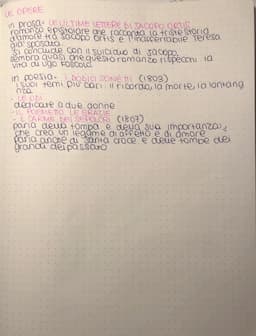 LE OPERE
in prosa: LE ULTIME LETTERE DI JACOPO ORTIS
romanzo epistolare che racconta la triste storia
d'amore tra Jacopo Ortis e l'inafferrabile Teresa,
già sposata.
Si conclude con il suicidio di Jacopo,
sembra quasi che questo romanzo rispecchi la
vita di Ugo Foscolo.
in poesia: I DODICI SONETTI (1803)
i suoi temi più cari: il ricordo, la morte, la lontanan
nza
- LE ODI
dedicate a due donne
- IL POEMETTO LE GRAZIE
- IL CARME DEI SEPOLCRI (1807)
parla della tomba e della sua importanza,
che crea un legame di affetto e di amore
parla anche di Santa Croce e delle tombe dei
grandi del passato